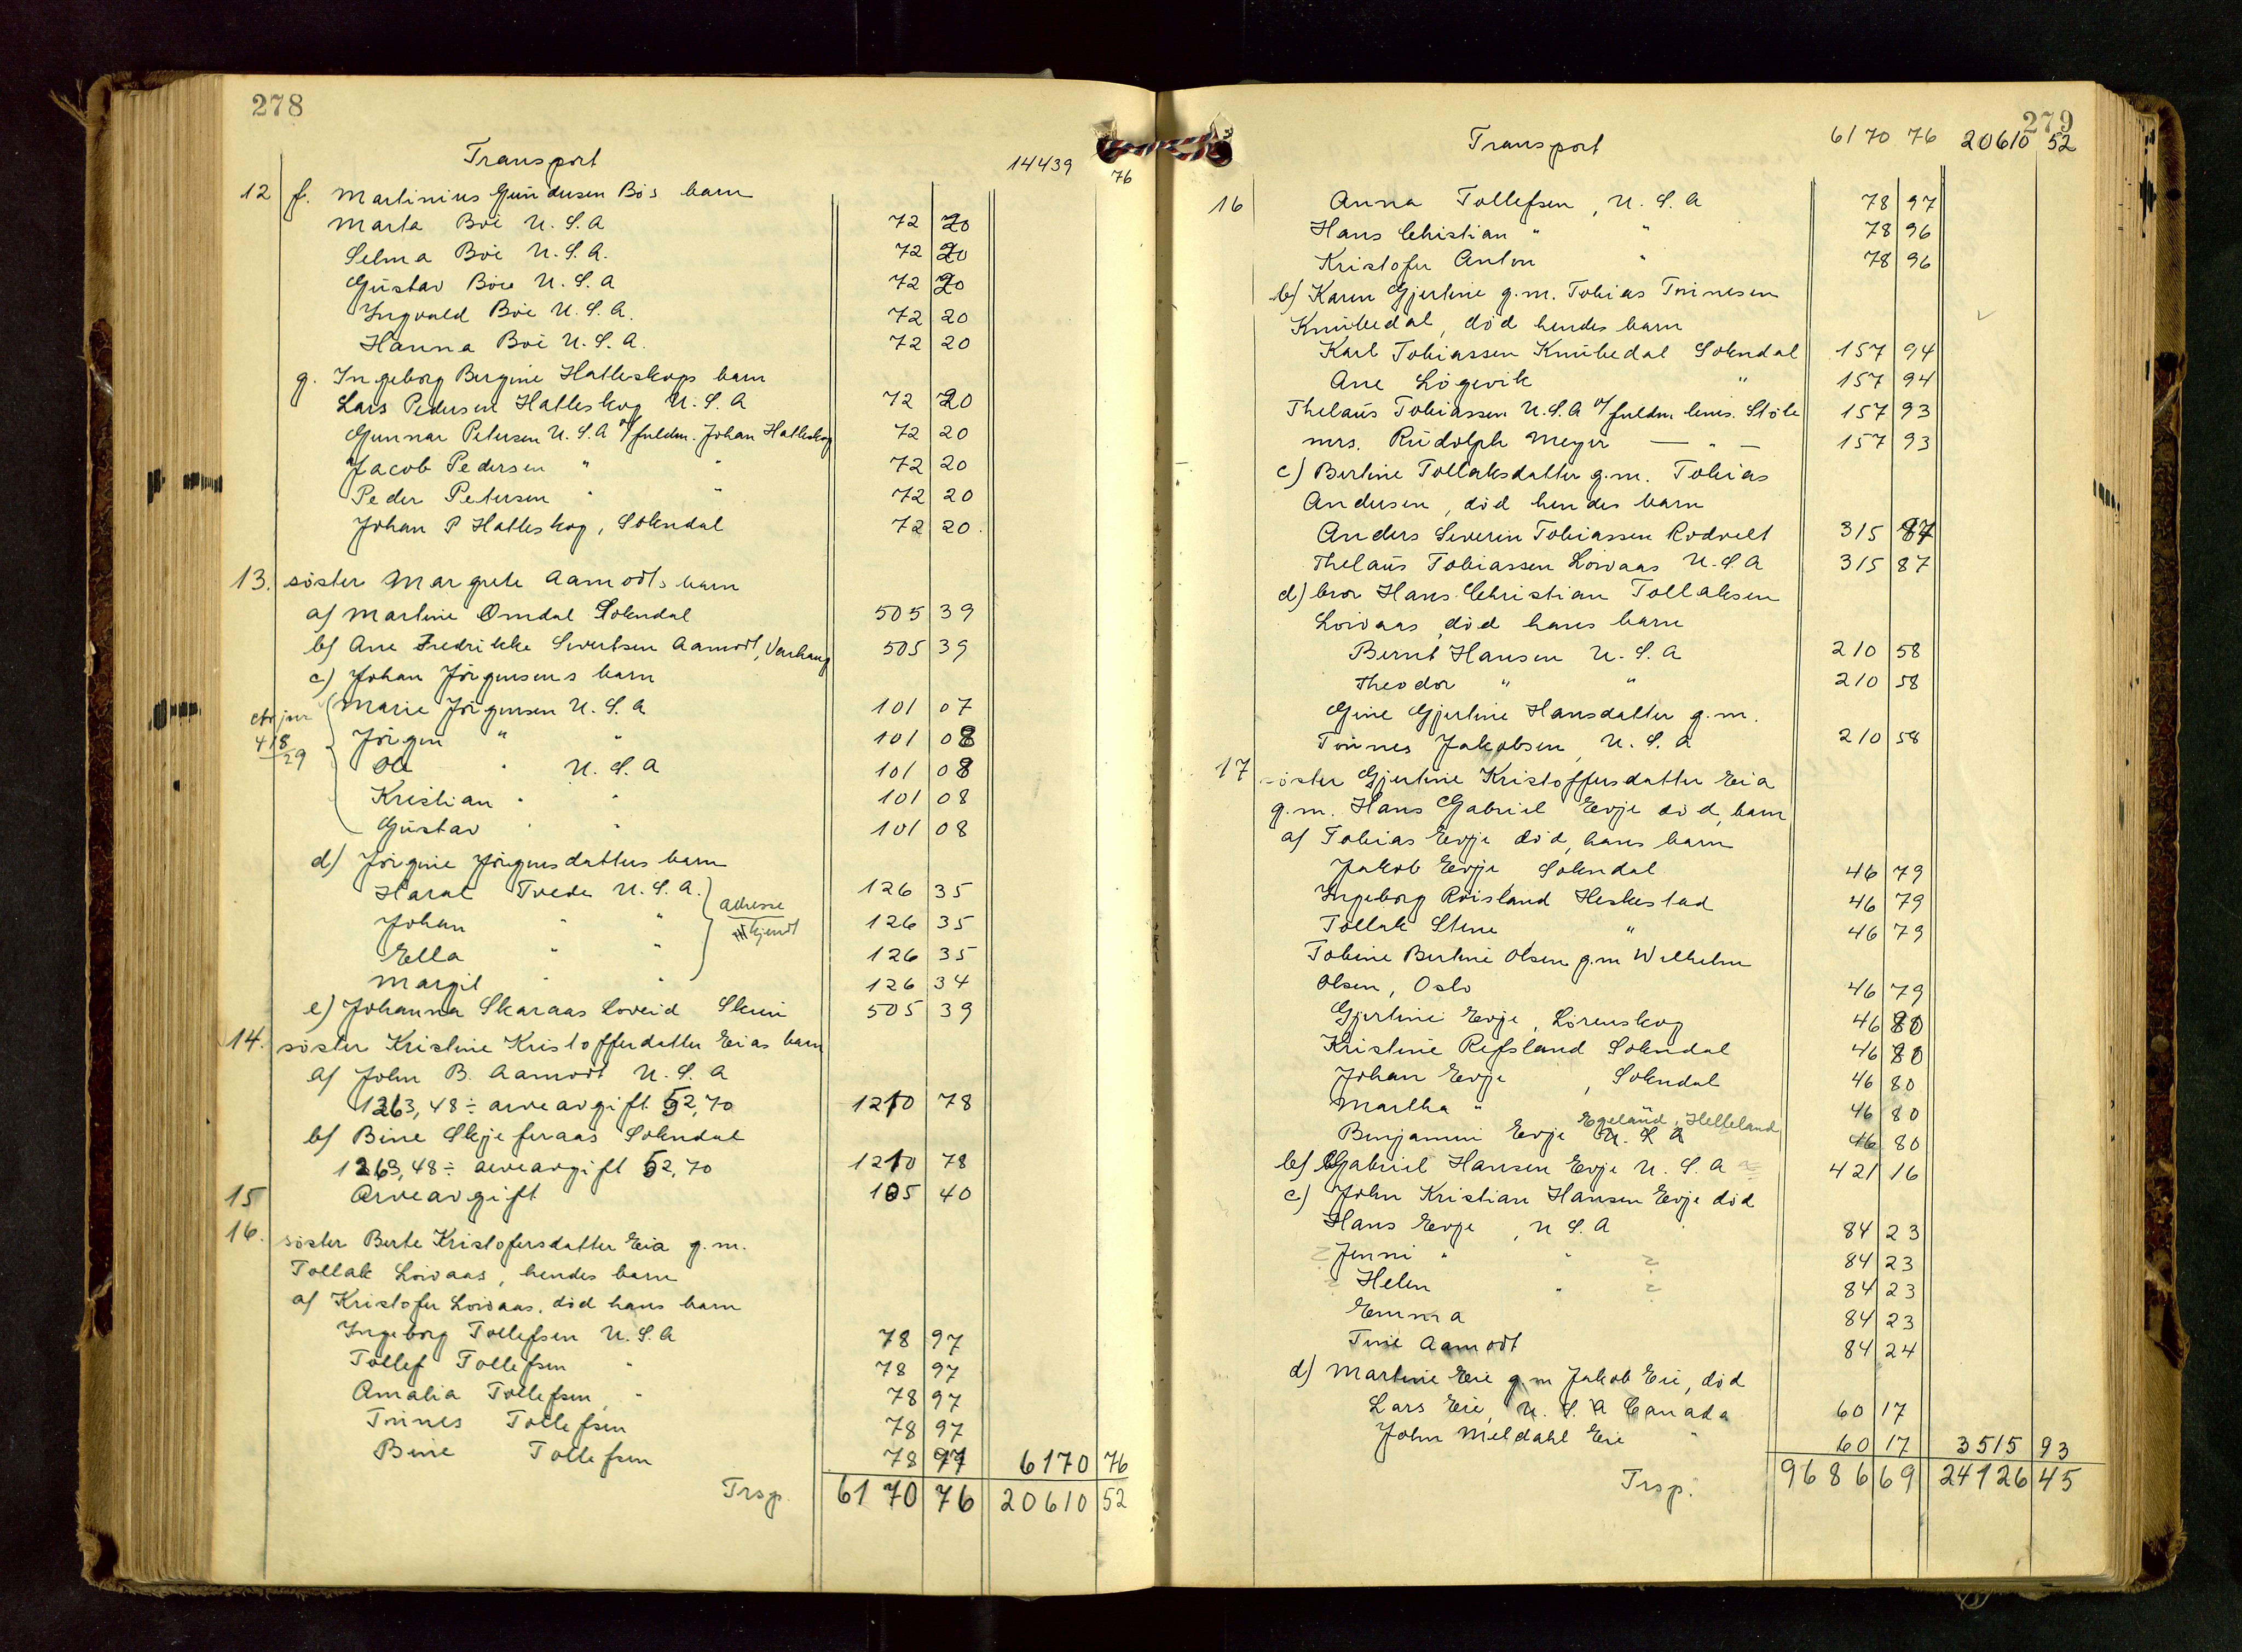 278
Transport 14439 76
12 f. Martinius Gundersen Bös barn
Marta Böe U.S.A 72 20
Selma Böe U.S.A. 72 20
Gustav Böe U.S.A 72 20
Ingvald Böe U.S.A. 72 20
Hanna Böe U.S.A. 72 20
g. Ingeborg Bergine Hatleskogs barn
Lars Pedersen Hatleskog U.S.A 72 20
Gunnar Petersen U.S.A v/ fuldm. Johan Hatleskog 72 20
Jacob Pedersen " " 72 20
Peder Petersen " " 72 20
Johan P Hatleskog, Sokndal 72 20.
13. söster Margrete Aamodts barn
a) Martine Omdal Sokndal 505 39
b) Ane Fredrikke Sivertsen Aamodt, Varhaug 505 39
c) Johan Jörgensens barn
Marie Jörgensen U.S.A 101 07
418/29
Jörgen " " 101 08
Ole " U.S.A 101 08
Kristian " " 101 08
Gustav " " 101 08
d) Jörgine Jörgensdatters barn
Haral Tvede U.S.A. 126 35
adresse
ukjendt
Johan " " 126 35
Ella " " 126 35
Margit " " 126 34
e) Johanna Skaraas Loveid Skien 505 39
14. söster Kristine Kristofferdatter Eias barn
a) John B. Aamodt U.S.A
1263,48 ÷ arveavgift 52,70 1210 78
b) Bine Skjeferaas Sokndal
1263,48 ÷ arveavgift 52,70 1210 78
15 Arveavgift 105 40
16. söster Berte Kristofersdatter Eia g.m.
Tollak Lövaas, hendes barn
a) Kristofer Lövaas, död hans barn
Ingeborg Tollefsen U.S.A 78 97
Tollef Tollefsen " 78 97
Amalia Tollefsen, " 78 97
Tönnes Tollefsen 78 97
Bine Tollefsen 78 97 6170 76
Trsp. 6170 76 20610 52
279
Transport 6170 76 20610 52
16 Anna Tollefsen, U.S.A 78 97
Hans Christian " " 78 96
Kristofer Anton " 78 96
b) Karen Gjertine g.m. Tobias Tönnesen
Knubedal, död hendes barn
Karl Tobiassen Knubedal Sokndal 157 94
Ane Lögevik " 157 94
Thelaus Tobiassen U.S.A v/ fuldm. lens. Stöle 157 93
mrs. Rudolph Meyer — " — 157 93
c) Bertine Tollaksdatter g.m. Tobias
Andersen, död hendes barn
Anders Severin Tobiassen Rodvelt 315 87
Thelaus Tobiassen Lövaas U.S.A 315 87
d) bror Hans Christian Tollaksen
Lövaas, död hans barn
Bernt Hansen U.S.A 210 58
Theodor " " 210 58
Gine Gjertine Hansdatter g.m.
Tönnes Jakobsen, U.S.A 210 58
17 söster Gjertine Kristoffersdatter Eia
g.m. Hans Gabriel Eevje död, barn
a) Tobias Eevje död, hans barn
Jakob Eevje Sokndal 46 79
Ingeborg Röisland Heskestad 46 79
Tollak Stene " 46 79
Tobine Bertine Olsen g.m Wilhelm
Olsen, Oslo 46 79
Gjertine Eevje, Lörenskog 46 80
Kristine Refsland Sokndal 46 80
Johan Eevje, Sokndal 46 80
Martha " 46 80
Egeland, Helleland
Benjamin Eevje U.S.A 46 80
b) Gabriel Hansen Eevje U.S.A 421 16
c) John Kristian Hansen Eevje död
Hans Eevje, U.S.A 84 23
? Jenni " " ? 84 23
? Helen " ? 84 23
Emma 84 23
Tine Aamodt 84 24
d) Martine Eie g.m Jakob Eie, död
Lars Eie, U.S.A Canada 60 17
John Meldahl Eie " 60 17 3515 93
Trsp. 9686 69 24126 45